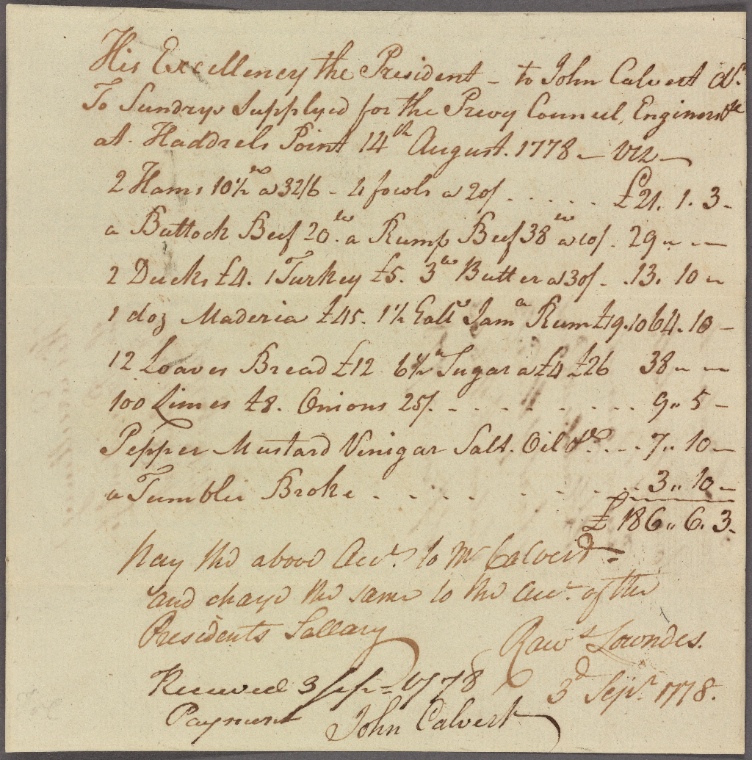 His Excellency the President - to John Calvert Dr.
To Sundrys Supplyed for the Prevy Council, Enginers &c
at Haddrels Point 14th August. 1778 - viz -
2 Hams 10½ w a 32/6 - 4 fowls a 20/ . . . . . £21. 1. 3 -
a Buttock Beef 20 w. a Rump Beef 38 w a 10/. 29 " - -
2 Ducks £4. 1 Turkey £5. 3 w Butter a 30/ . . 13. 10 -
1 doz Maderia £45. 1½ Galls Jama Rum £19.10 64. 10 -
12 Loaves Bread £12 6½ w Sugar a £4 £26 38 - -
100 Limes £8. Onions 25/. - - - - - . . . 9 " 5 -
Pepper Mustard Vinigar Salt. Oil &c - . . . 7 " 10 -
a Tumbler Broke . . . . . . . . 3 " 10 -
£ 186 " 6. 3.
Pay the above Acct. to Mr Calvert -
and charge the same to the acct. of the
Presidents Sallary
Raws Lowndes.
3d Sepr. 1778.
Received 3 Sepr 1778
Payment John Calvert